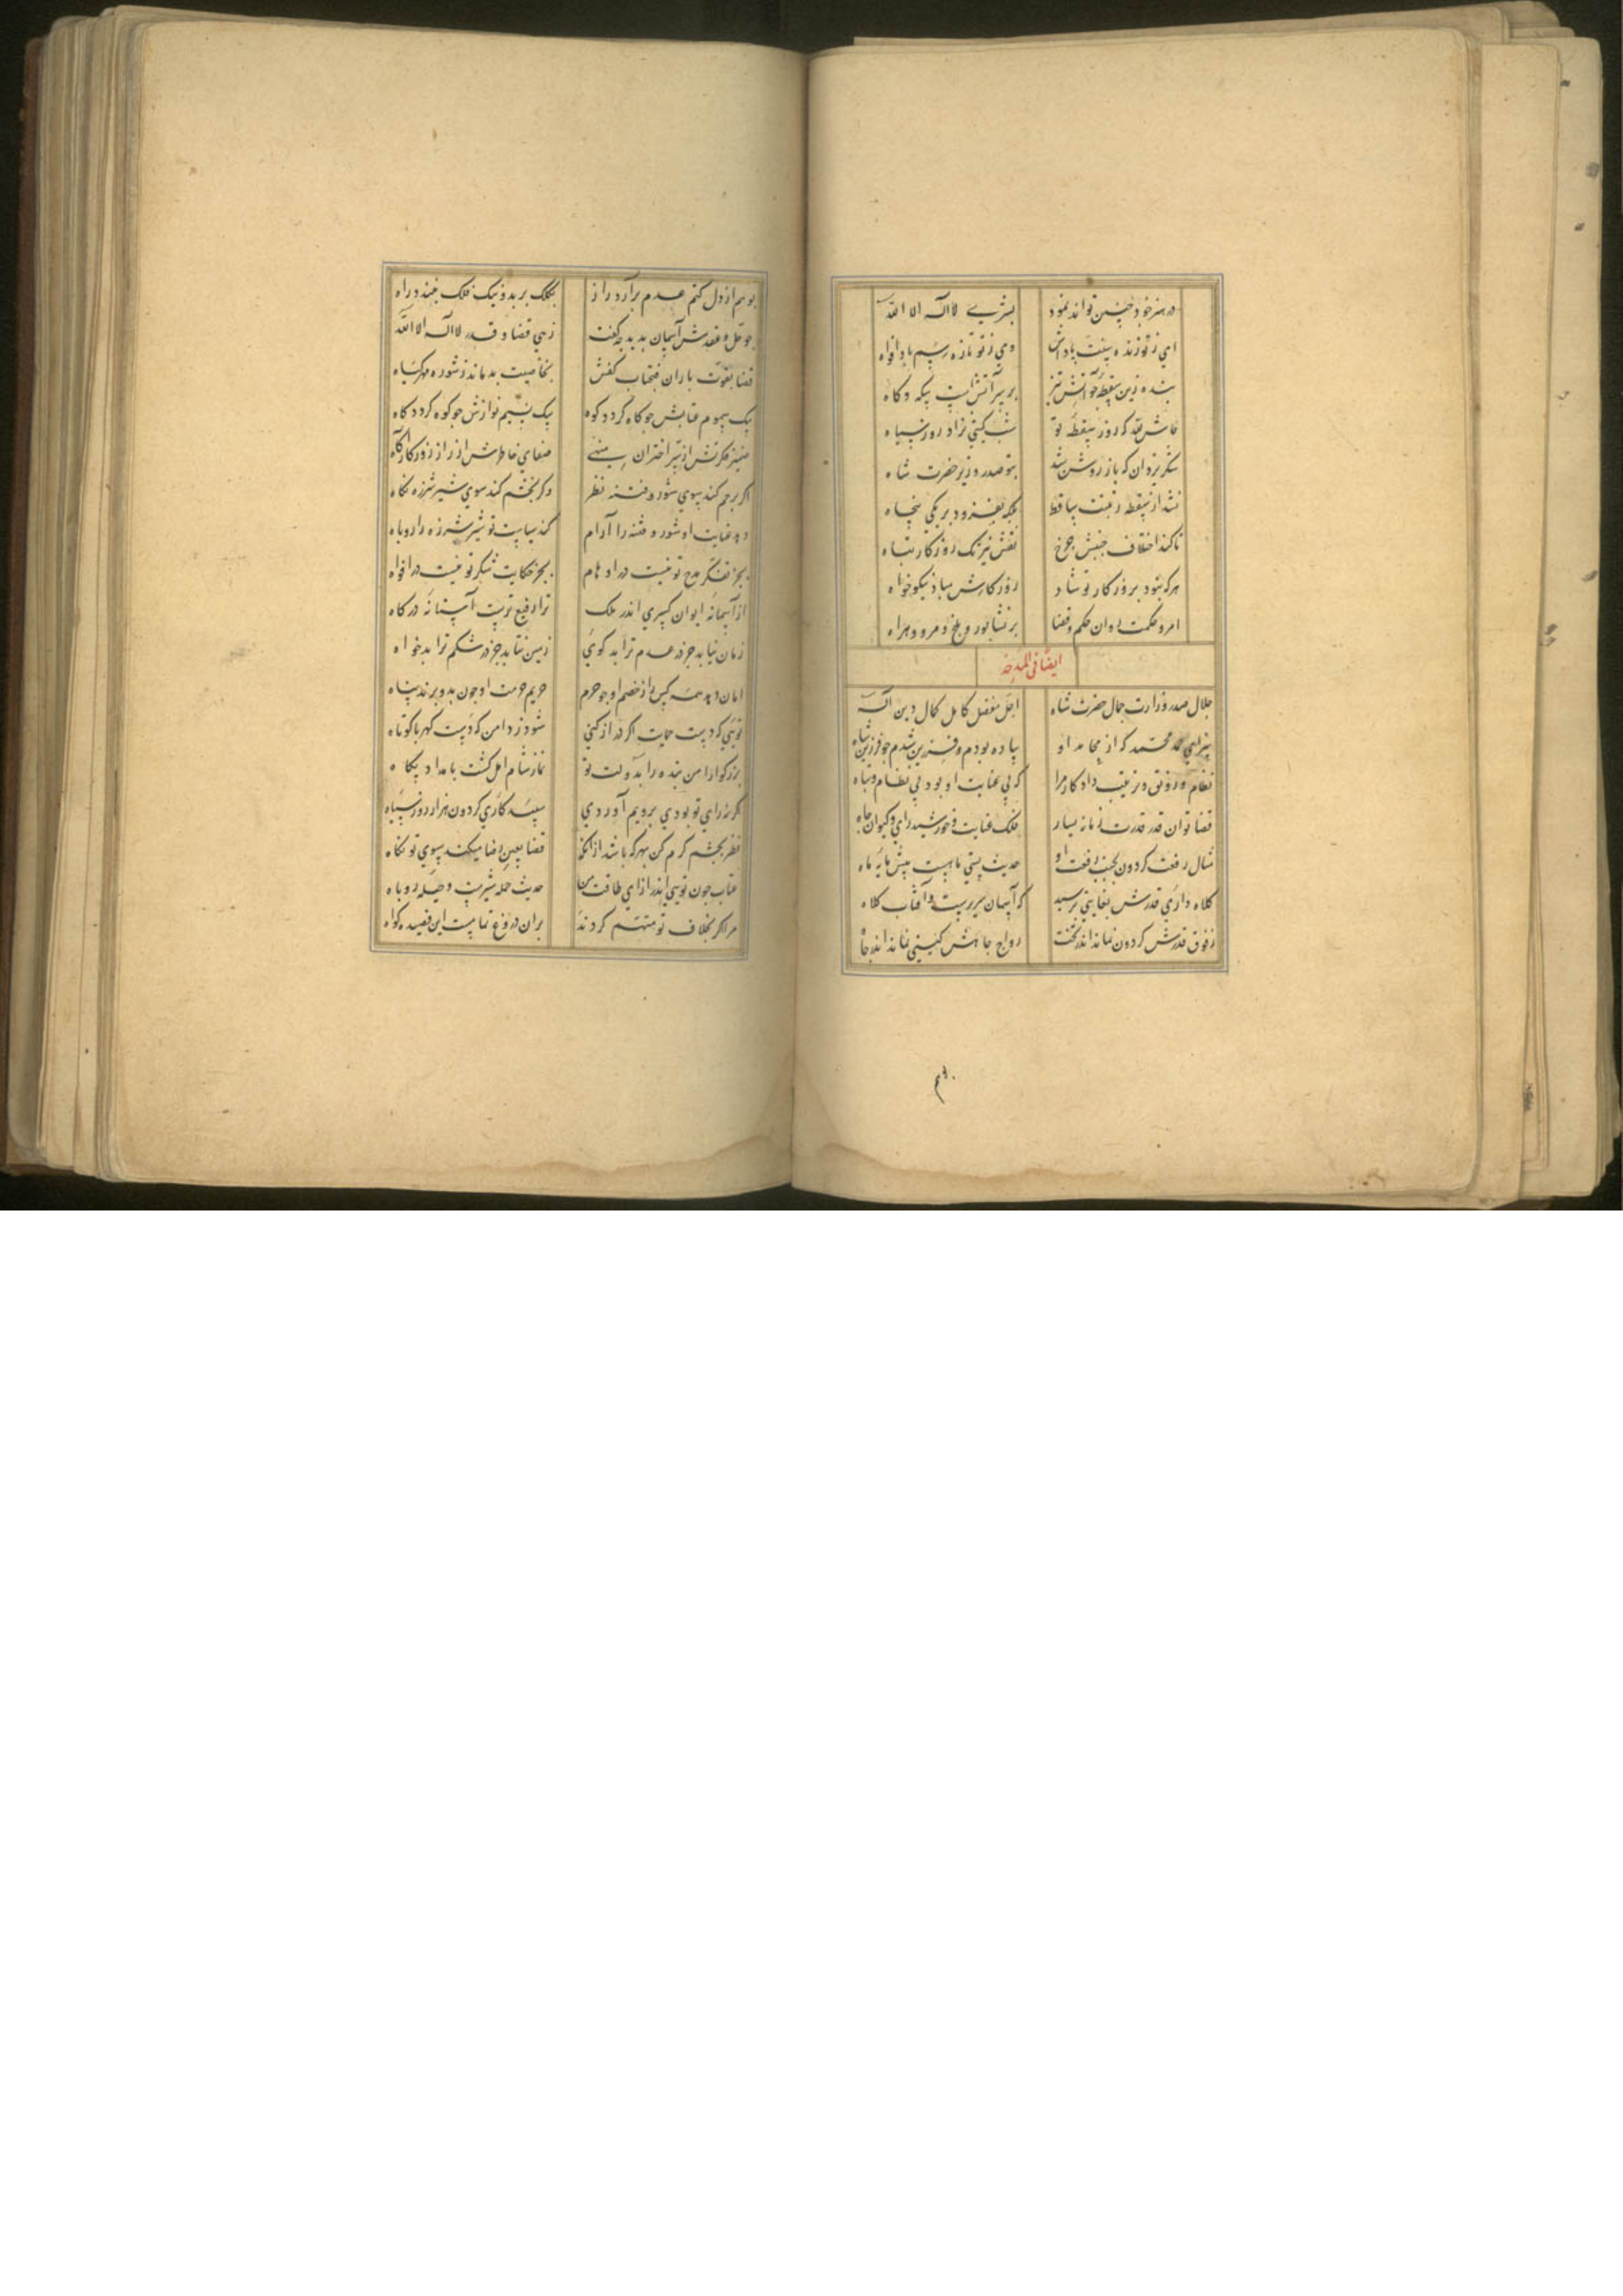 در هنر خود چنین تواند بود بشری لا اله الا الله
ای ز تو زنده سنت پاداش وی ز تو تازه رسم باد افراه
بنده زین سقطه چو آتش تیز بر سر آتش است بیکه و کاه
حاش لله که روز سقطه تو شب کیتی نزاد روز سیاه
شکر یزدان که باز روشن شد بتو صدر وزیر حضرت شاه
نشد از سقطه زینت ساقط بلکه بفزود بر یکی پنجاه
تا کند اختلاف جنبش چرخ نقش نیرنک روزکار تباه
هر که نبود بروزکار تو شاد روزکارش مباد نیکو خواه
امر و حکمت روان چو حکم قضا بر نشابور و بلخ و مرو و هراه
ایضا فی المدحه
جلال صدر وزارت جمال حضرت شاه اجل مفضل کامل کمال دین اله
سزای حمد محمد که از محامد او پیاده بودم و فرزین شدم چو فرزین شاه
نظام و رونق و ترتیب داد کار مرا که بی عنایت او بود بی نظام و تباه
قضا توان قدر قدرت زمانه یسار فلک عنایت و خورشید رای و کیوان جاه
مثال رفعت کردون بجنب رفعت او حدیث پستی ماهیست پیش پایه ماه
کلاه داری قدرش بغایتی برسید که آسمان سریرست و آفتاب کلاه
ز فوق قدرش کردون نماند اندر تحت رواج جاهش کیتی نماند اندر جاه
بوهم از دل کتم عدم برآرد راز بکلک بر بد و نیک فلک ببندد راه
چو حل و عقدش آسمان بدید چه کفت زهی قضا و قدر لا اله الا الله
قضا بقوت باران فتحباب کفش بخاصیت بدماند ز شوره مهر کیاه
بیک سموم عتابش چو کاه کردد کوه بیک نسیم نوازش چو کوه کردد کاه
ضمیر فکرتش از سر اختران منهی صفای خاطرش از راز روزکار آکاه
اکر برحم کند سوی شور و فتنه نظر وکر بخشم کند سوی شیر شرزه نکاه
دهد عنایت او شور و فتنه را آرام کند سیاست تو شیر شرزه را روباه
بجز تفکر مدح تو نیست در اوهام بجز حکایت شکر تو نیست در افواه
از آسمانه ایوان کسری اندر ملک ترا رفیع ترست آستانه درکاه
زمان نیابد جز در عدم ترا بد کوی زمین نتابد جز در شکم ترا بدخواه
امان دهد همه کس را ز خصم او چو حرم حریم حرمت او چون بدو برند پناه
تویی که دست حمایت اکر دراز کنی شود ز دامن که دست کهربا کوتاه
بزرکوارا من بنده را بدولت تو نماز شام امل کشت بامداد پکاه
اکر نه رای تو بودی برویم آوردی سپید کاری کردون هزار روز سیاه
نظر بچشم کرم کن بهر که باشد از آنکه قضا بعین رضا میکند بسوی تو نکاه
عتاب چون تویی اندر ازای طاقت من حدیث حمله شیرست و حیله روباه
مرا اکر بخلاف تو متهم کردند بران دروغ تمامست این قصیده کواه